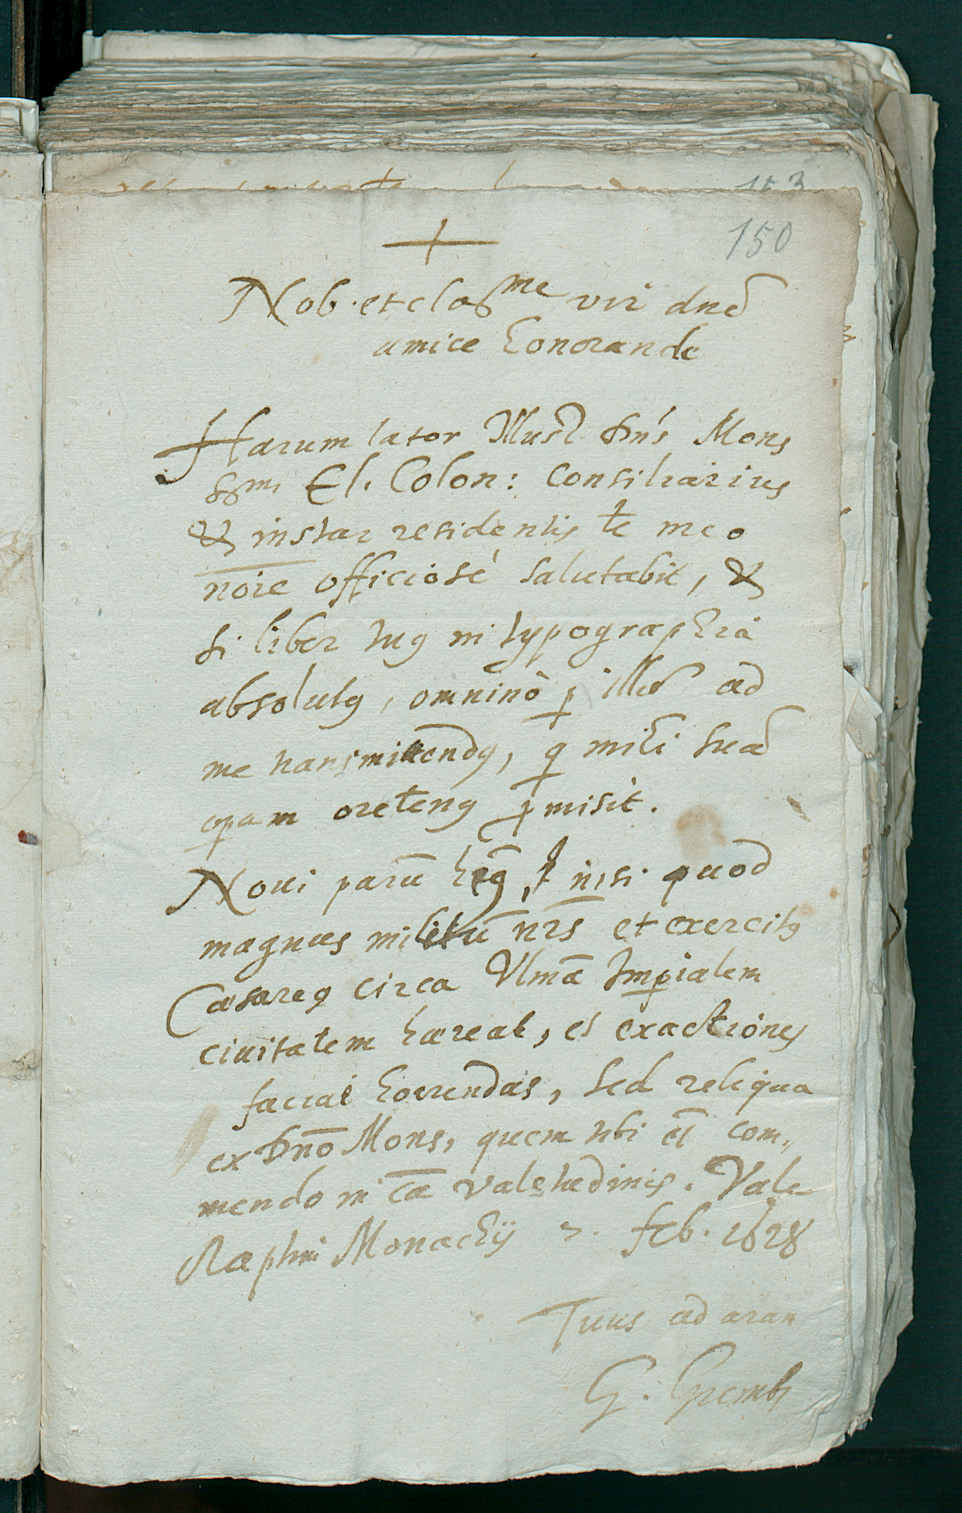 153
150
Nob. et claß.me vir dnē
amice honorande
Harum lator Illust. Dn̄s Mons
Ssmi El. Colon: Consiliarius
& instar residentis te meo
noie officiosè salutabit, &
si liber tuus in typographia
absolutus, omninò p illū ad
me transmittendus, q mihi suā
opam oretenus pmisit.
Noui parū nisi quod
magnus militū nrs et exercitus
Cæsareus circa Vlmā Impialem
ciuitatem hæreat, et exactiones
faciat horrendas, sed reliqua
ex Dn̄o Mons, quem tibi et com„
mendo in valetudinis. Vale
Raptim Monachij 7. feb. 1628
Tuus ad aran
G.